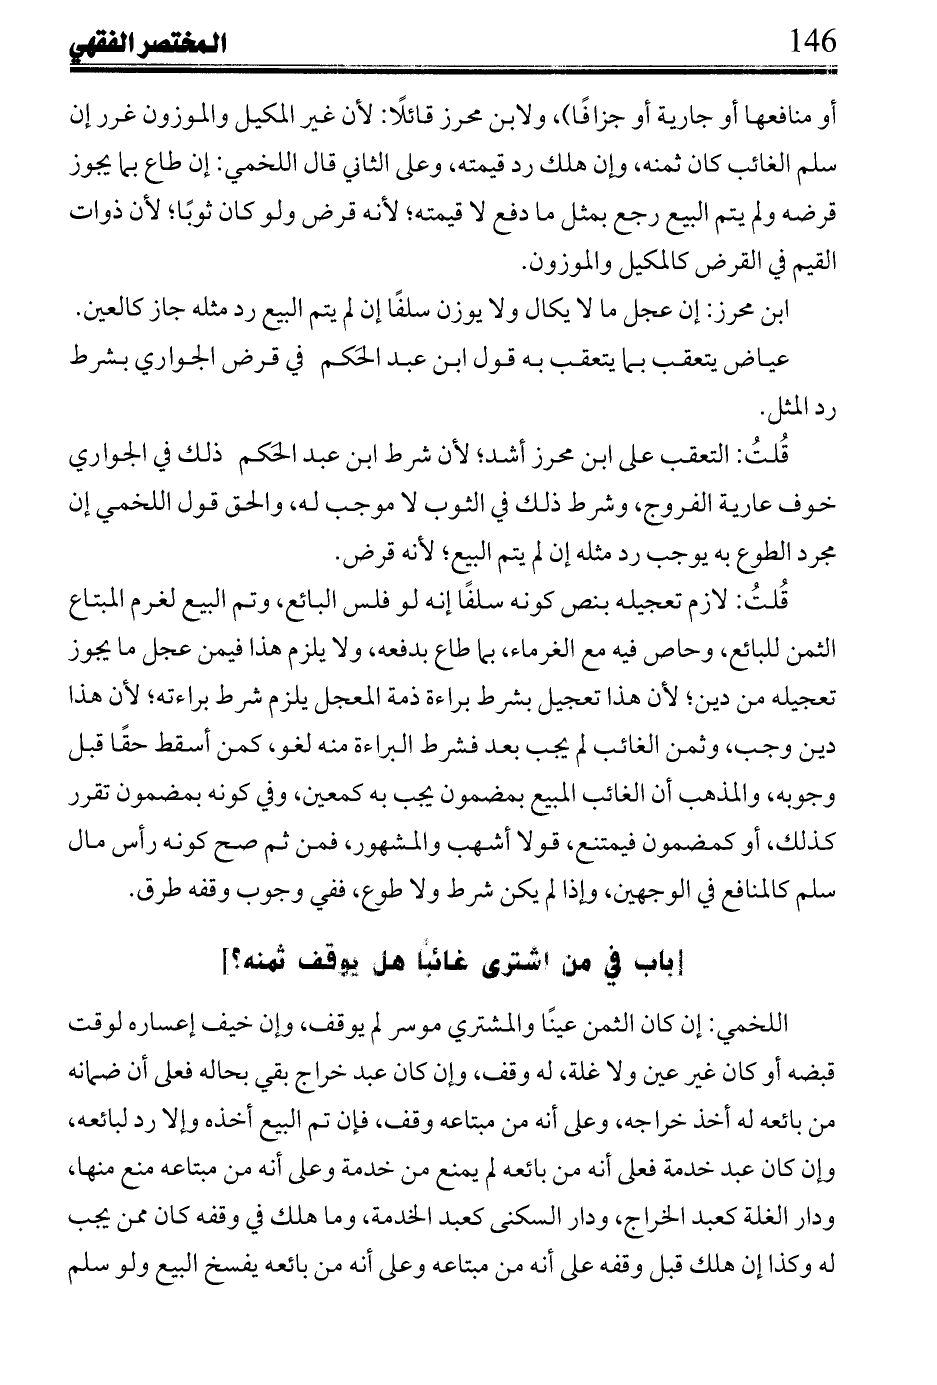 146
المختصر الفقهي
أو منافعها أو جارية أو جزافًا)، ولابن محرز قائلًا: لأن غير المكيل والموزون غرر إن
سلم الغائب كان ثمنه، وإن هلك رد قيمته، وعلى الثاني قال اللخمي: إن طاع بما يجوز
قرضه ولم يتم البيع رجع بمثل ما دفع لا قيمته؛ لأنه قرض ولو كان ثوبًا؛ لأن ذوات
القيم في القرض كالمكيل والموزون.
ابن محرز: إن عجل ما لا يكال ولا يوزن سلفًا إن لم يتم البيع رد مثله جاز كالعين.
عياض يتعقب بما يتعقب به قول ابن عبد الحكم في قرض الجواري بشرط
رد المثل.
قُلتُ: التعقب على ابن محرز أشد؛ لأن شرط ابن عبد الحكم ذلك في الجواري
خوف عارية الفروج، وشرط ذلك في الثوب لا موجب له، والحق قول اللخمي إن
مجرد الطوع به يوجب رد مثله إن لم يتم البيع؛ لأنه قرض.
قُلتُ: لازم تعجيله بنص كونه سلفًا إنه لو فلس البائع، وتم البيع لغرم المبتاع
الثمن للبائع، وحاص فيه مع الغرماء، بما طاع بدفعه، ولا يلزم هذا فيمن عجل ما يجوز
تعجيله من دين؛ لأن هذا تعجيل بشرط براءة ذمة المعجل يلزم شرط براءته؛ لأن هذا
دين وجب، وثمن الغائب لم يجب بعد فشرط البراءة منه لغو، كمن أسقط حقًا قبل
وجوبه، والمذهب أن الغائب المبيع بمضمون يجب به كمعين، وفي كونه بمضمون تقرر
كذلك، أو كمضمون فيمتنع، قولا أشهب والمشهور، فمن ثم صح كونه رأس مال
سلم كالمنافع في الوجهين، وإذا لم يكن شرط ولا طوع، ففي وجوب وقفه طرق.
[باب في من اشترى غائبًا هل يوقف ثمنه؟]
اللخمي: إن كان الثمن عينًا والمشتري موسر لم يوقف، وإن خيف إعساره لوقت
قبضه أو كان غير عين ولا غلة، له وقف، وإن كان عبد خراج بقي بحاله فعلى أن ضمانه
من بائعه له أخذ خراجه، وعلى أنه من مبتاعه وقف، فإن تم البيع أخذه وإلا رد لبائعه،
وإن كان عبد خدمة فعلى أنه من بائعه لم يمنع من خدمة وعلى أنه من مبتاعه منع منها،
ودار الغلة كعبد الخراج، ودار السكنى كعبد الخدمة، وما هلك في وقفه كان ممن يجب
له وكذا إن هلك قبل وقفه على أنه من مبتاعه وعلى أنه من بائعه يفسخ البيع ولو سلم